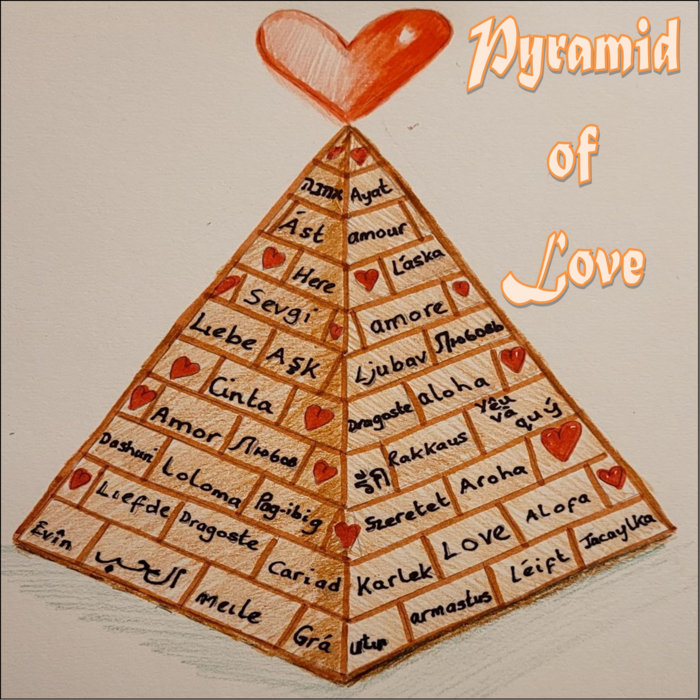 Pyramid
of
Love
אהבה Ayat
Ást amour
Here Láska
Sevgi amore
Liebe Aşk Ljubav Любовь
Cinta Dragoste aloha
Amor Любов Rakkaus Yêu và quý
Dashuri Loloma Pag-ibig Szeretet Aroha
Liefde Dragoste Cariad Karlek Love Alofa
Evîn الحب Meile Grá armastus Léift Jacaylka